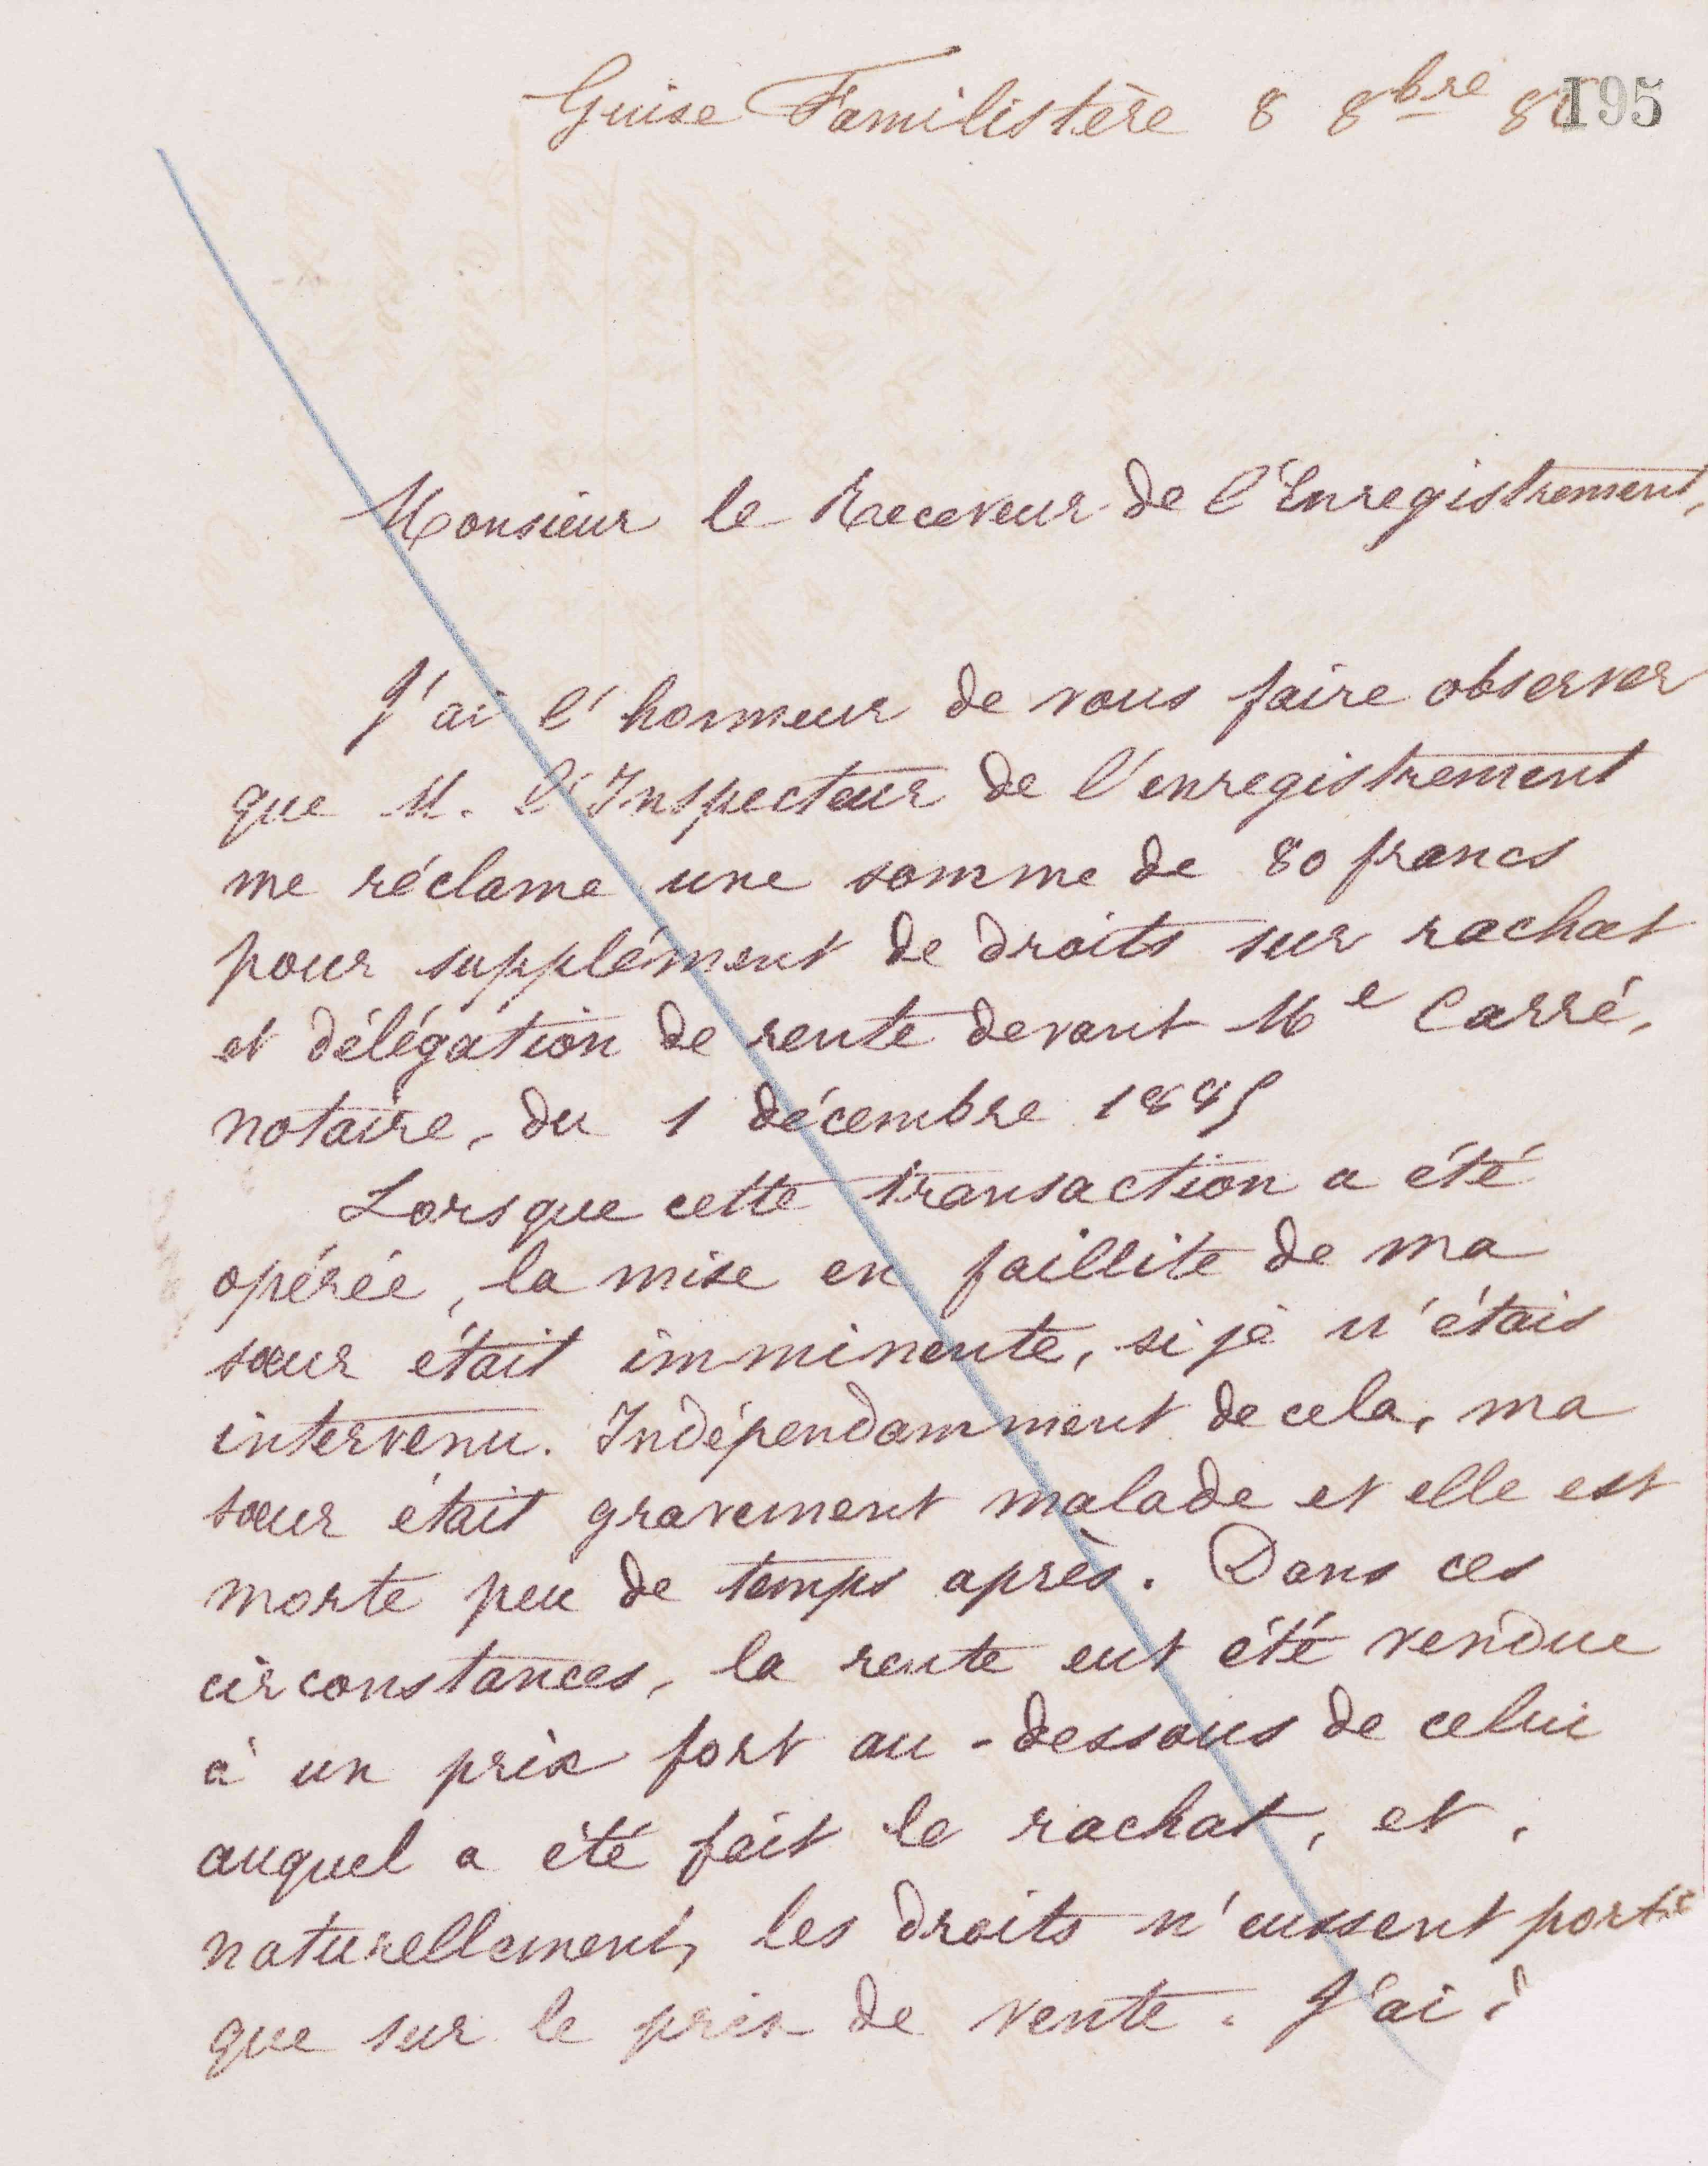 Guise Familistère 8 8bre 8
195
Monsieur le Receveur de l'Enregistrement,
J'ai l'honneur de vous faire observer
que M. l'Inspecteur de l'enregistrement
me réclame une somme de 80 francs
pour supplément de droits sur rachat
et délégation de rente devant Me Carré,
notaire, du 1 décembre
Lorsque cette transaction a été
opérée, la mise en faillite de ma
sœur était imminente, si je n'étais
intervenu. Indépendamment de cela, ma
sœur était gravement malade et elle est
morte peu de temps après. Dans ces
circonstances, la rente eut été vendue
à un prix fort au-dessous de celui
auquel a été fait le rachat, et,
naturellement, les droits n'eussent porté
que sur le prix de vente. J'ai